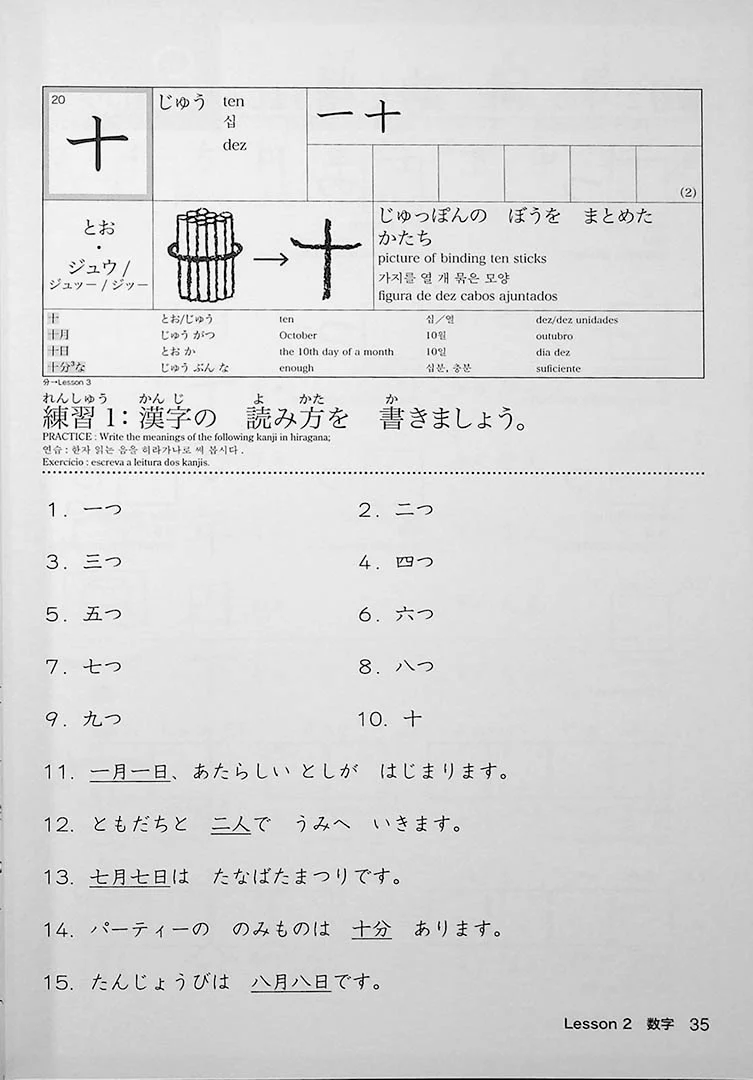 20
十
じゅう ten
십
dez
一 十
(2)
とお
・
ジュウ/
ジュッー/ジッー
→ 十
じゅっぽんの ぼうを まとめた
かたち
picture of binding ten sticks
가지를 열 개 묶은 모양
figura de dez cabos ajuntados
十 とお/じゅう ten 십/열 dez/dez unidades
十月 じゅう がつ October 10월 outubro
十日 とお か the 10th day of a month 10일 dia dez
十分³な じゅう ぶん な enough 십분, 충분 suficiente
分→Lesson 3
れんしゅう かん じ よ かた か
練習 1：漢字の 読み方を 書きましょう。
PRACTICE : Write the meanings of the following kanji in hiragana;
연습 : 한자 읽는 음을 히라가나로 써 봅시다 .
Exercício : escreva a leitura dos kanjis.
1. 一つ 2. 二つ
3. 三つ 4. 四つ
5. 五つ 6. 六つ
7. 七つ 8. 八つ
9. 九つ 10. 十
11. 一月一日、あたらしい としが はじまります。
12. ともだちと 二人で うみへ いきます。
13. 七月七日は たなばたまつりです。
14. パーティーの のみものは 十分 あります。
15. たんじょうびは 八月八日です。
Lesson 2 数字 35